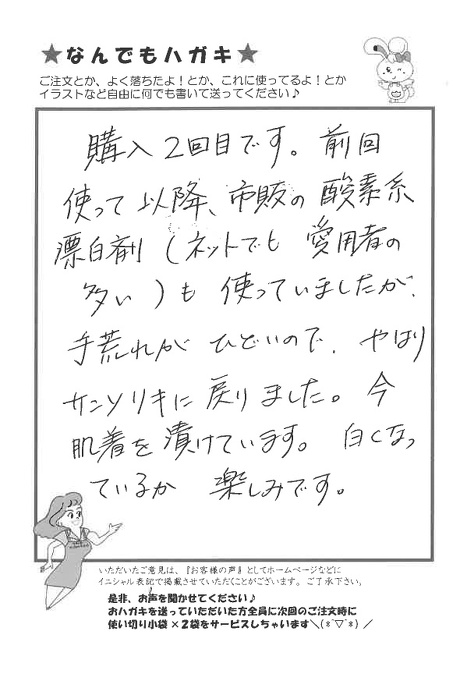 ★なんでもハガキ★
ご注文とか、よく落ちたよ！とか、これに使ってるよ！とか
イラストなど自由に何でも書いて送ってください♪
購入2回目です。前回
使って以降、市販の酸素系
漂白剤（ネットでも愛用者の
多い）も使っていましたが、
手荒れがひどいので、やはり
サンソリキに戻りました。今
肌着を漬けています。白くなっ
ているか楽しみです。
いただいたご意見は、『お客様の声』としてホームページなどに
イニシャル表記で掲載させていただくことがございます。ご了承下さい。
是非、お声を聞かせてください♪
おハガキを送っていただいた方全員に次回のご注文時に
使い切り小袋×2袋をサービスしちゃいます＼(*ﾟ▽ﾟ*) ／